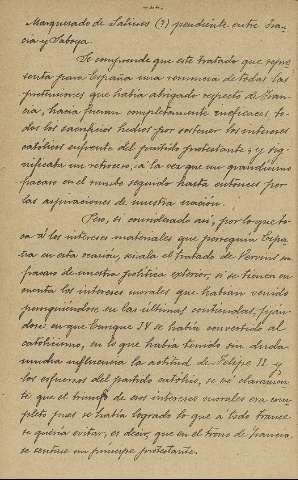 Marquesado de Saluces (?) pendiente entre Fran-
cia y Saboya.
Se comprende que este tratado que repre
senta para España una renuncia de todas las
pretensiones que había abrigado respecto de Fran-
cia, hacía fueran completamente ineficaces to-
dos los sacrificios hechos por sostener los intereses
católicos enfrente del partido protestante; y sig-
nificaba un retroceso, a la vez que un grandísimo
fracaso en el rumbo seguido hasta entonces por
las aspiraciones de nuestra nación.
Pero, si considerado así, por lo que to-
ca á los intereses materiales que perseguía Espa-
ña en esta ocasión, señala el tratado de Vervins un
fracaso de nuestra política exterior, si se tienen en
cuenta los intereses morales que habían venido
persiguiéndose en las últimas contiendas, fiján-
dose en que Enrique IV se había convertido al
catolicismo, en lo que había tenido sin duda
mucha influencia la actitud de Felipe II y
los esfuerzos del partido católico, se ve claramen-
te que el triunfo de esos intereses morales era com-
pleto pues se había logrado lo que á todo trance
se quería evitar, es decir, que en el trono de Francia
se sentase un príncipe protestante.